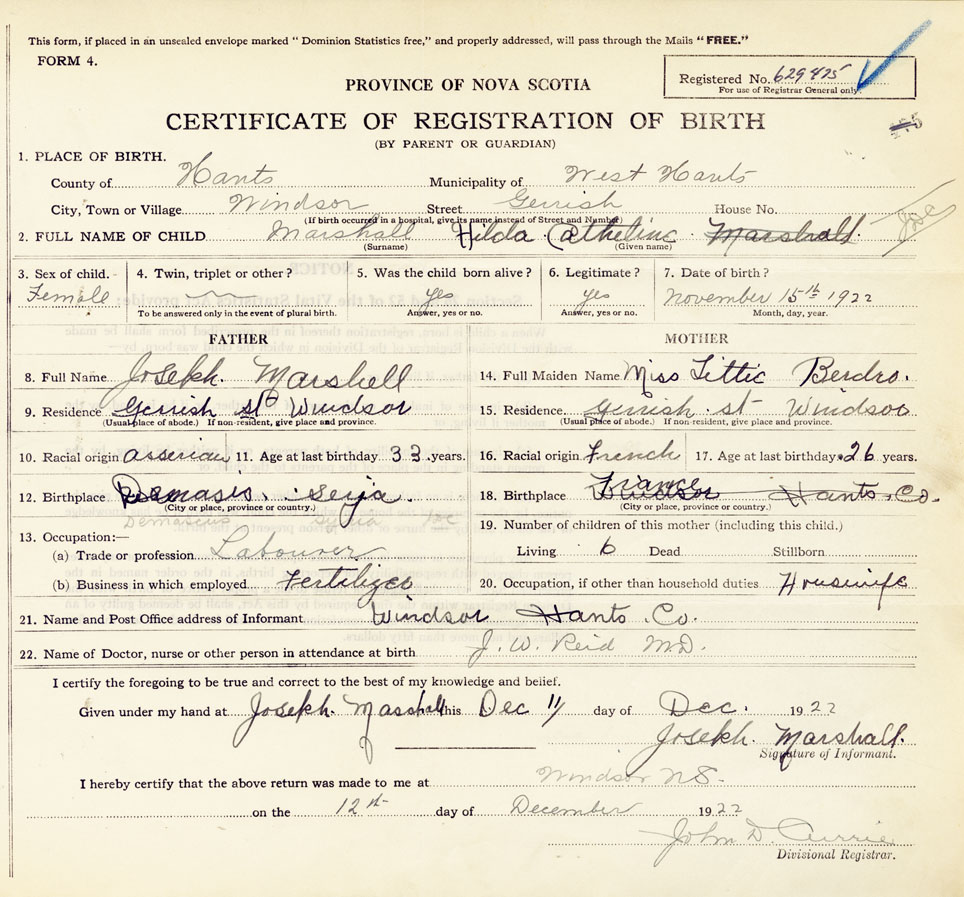 This form, if placed in an unsealed envelope marked “ Dominion Statistics free,” and properly addressed, will pass through the Mails “FREE.”
FORM 4.
Registered No. 629425
For use of Registrar General only.
PROVINCE OF NOVA SCOTIA
CERTIFICATE OF REGISTRATION OF BIRTH
(BY PARENT OR GUARDIAN)
1. PLACE OF BIRTH.
County of Hants Municipality of West Hants
City, Town or Village Windsor Street Gerrish House No.
(If birth occurred in a hospital, give its name instead of Street and Number)
2. FULL NAME OF CHILD Marshall Hilda Catheline Marshall
(Surname) (Given name)
3. Sex of child. 4. Twin, triplet or other? 5. Was the child born alive? 6. Legitimate? 7. Date of birth?
Female yes yes November 15th 1922
To be answered only in the event of plural birth. Answer, yes or no. Answer, yes or no. Month, day, year.
FATHER MOTHER
8. Full Name Joseph. Marshell 14. Full Maiden Name Miss Littic Berdro.
9. Residence Gerrish st Windsor 15. Residence Gerrish st Windsor
(Usual place of abode.) If non-resident, give place and province. (Usual place of abode.) If non-resident, give place and province.
10. Racial origin asserian 11. Age at last birthday 33 years. 16. Racial origin French 17. Age at last birthday 26 years.
France
12. Birthplace Demasis. Seria. 18. Birthplace Windsor Hants. Co.
(City or place, province or country.) (City or place, province or country.)
Demascus Syria
19. Number of children of this mother (including this child.)
13. Occupation:—
(a) Trade or profession Labourer Living 6 Dead Stillborn
(b) Business in which employed Fertilizer 20. Occupation, if other than household duties Housewife
21. Name and Post Office address of Informant Windsor Hants. Co.
22. Name of Doctor, nurse or other person in attendance at birth J. W. Reid M.D.
I certify the foregoing to be true and correct to the best of my knowledge and belief.
Given under my hand at Joseph. Marshall this Dec 11 day of Dec. 1922
Joseph. Marshall.
Signature of Informant.
I hereby certify that the above return was made to me at Windsor N.S.
on the 12th day of December 1922
John D. Currie
Divisional Registrar.